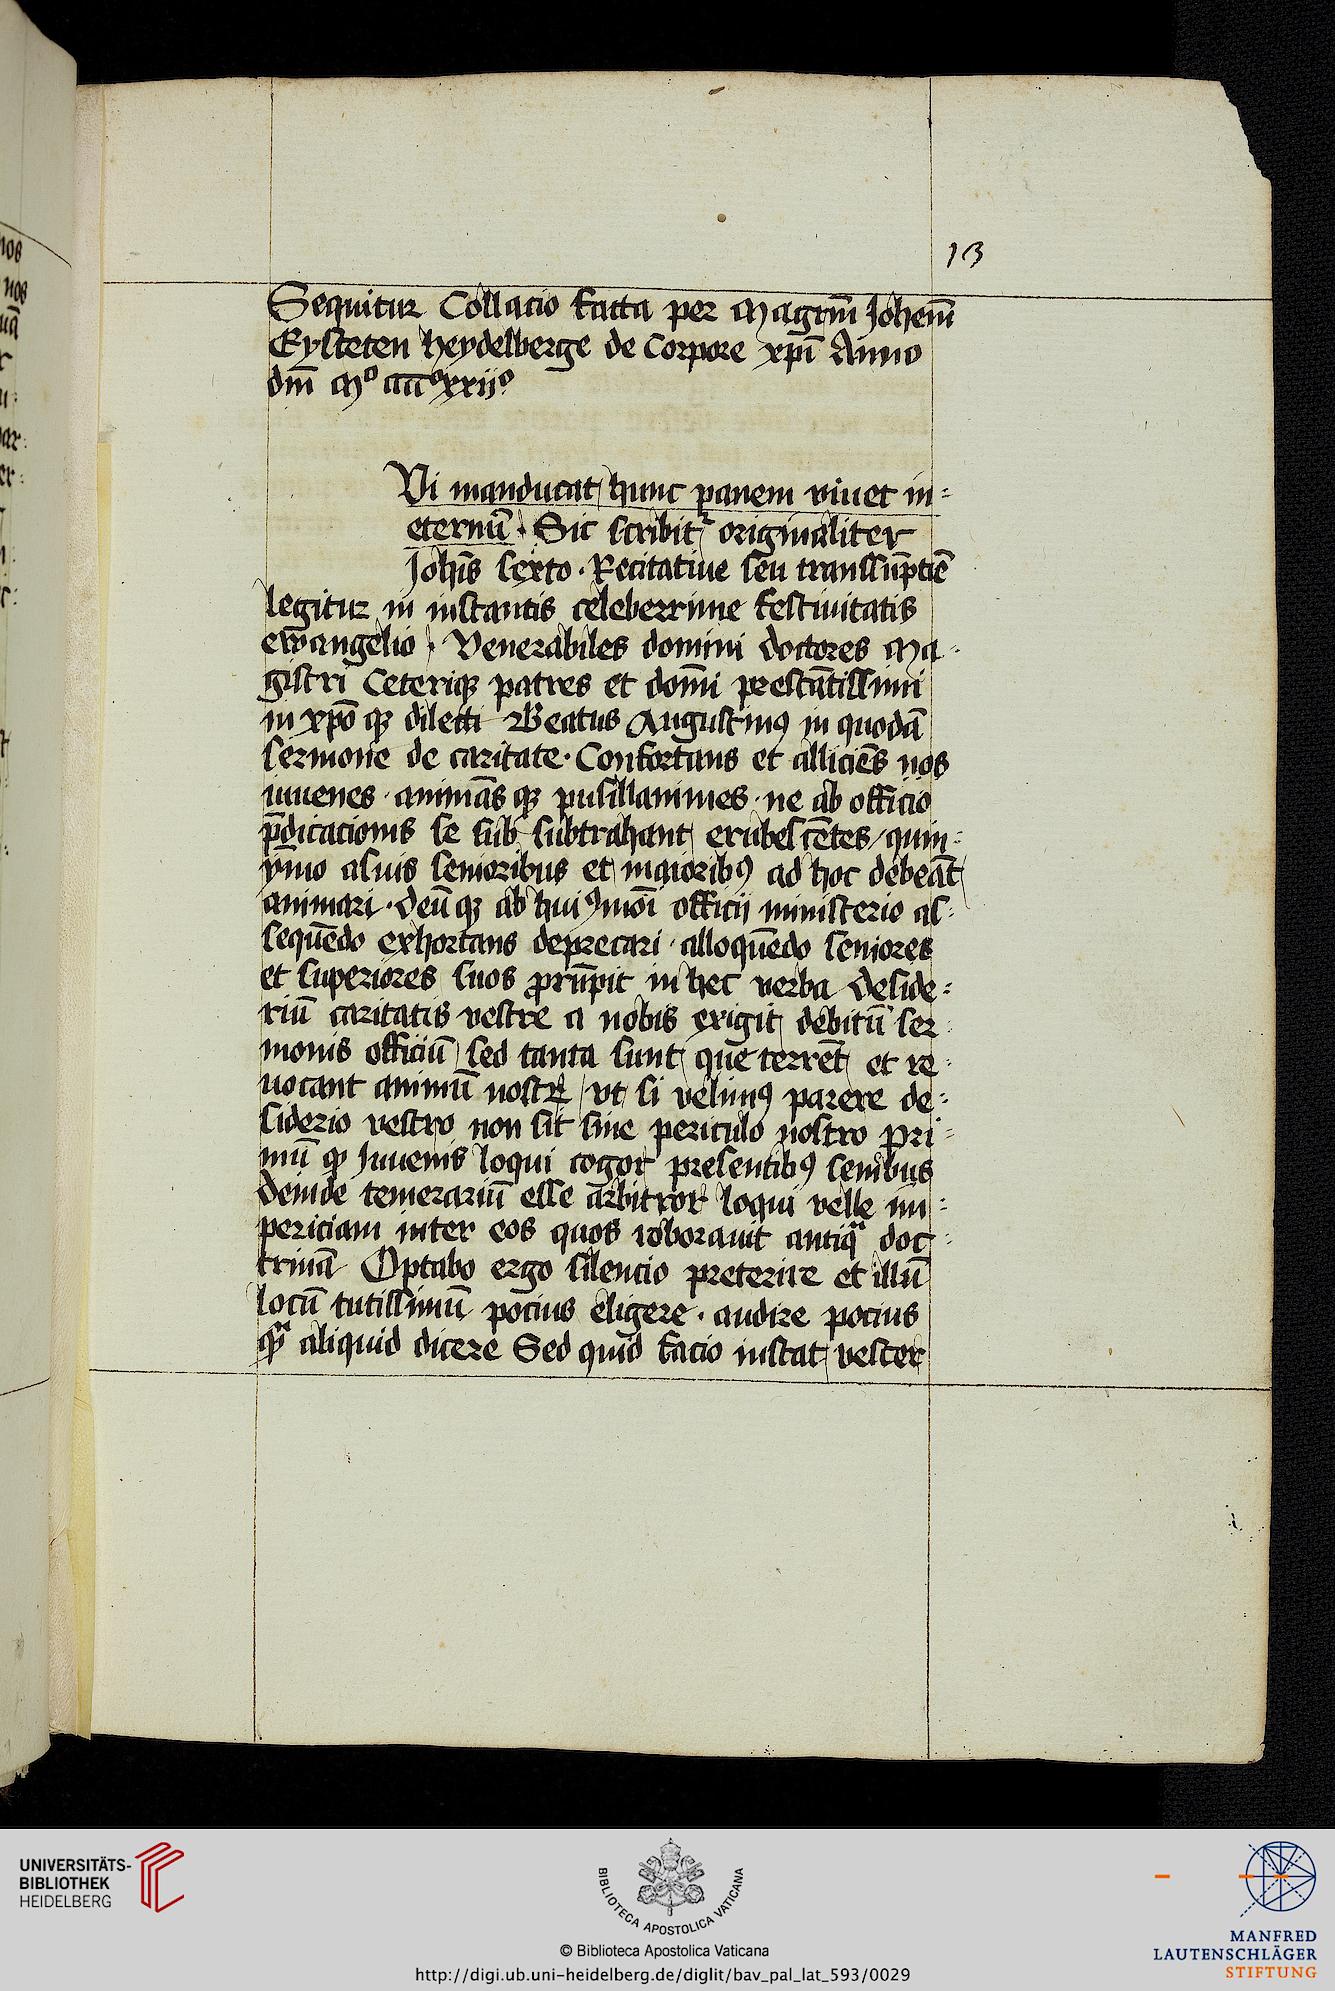 13
Sequitur Collacio facta per Magrm̄ Joheꝫm̄
Eysteten heydelberge de Corpore xp̄i Anno
dm̄ Mº ccccº xxijº
Vi manducat hunc panem viuet in=
eternū · Sic scribitᷣ originaliter
Joh̄is sexto · Recitatiue seu transsūptiē
legitur in instantis celeberrime festiuitatis
ewangelio · Venerabiles domini doctores Ma=
gistri Ceteriqꝫ patres et domī prestātissimi
in xp̄o qꝫ dilecti Beatus Augustinꝰ in quodā
sermone de caritate · Confortans et alliciēs nos
iuuenes · animāsqꝫ pusillanimes · ne ab officio
p̄dicacionis se sub subtrahant erubescētes / quin=
ymo a suis senioribus et maioribꝰ ad hoc debeāt
animari · deūqꝫ ab huiꝰmōi officij ministerio as=
sequēdo exhortans deprecari · alloquēdo seniores
et superiores suos prorūpit in hec verba Deside=
riū caritatis vestre a nobis exigit debitū ser
monis officiū / sed tanta sunt que terrēt et re=
uocant animū nostꝝ / vt si velimꝰ parere de=
siderio vestro non sit sine periculo nostro Pri=
mū qꝫ Juuenis loqui cogor presentibꝰ senibus
deinde temerariū esse arbitror loqui velle im=
periciam inter eos quos roborauit antiqᵃ doc=
trinā Optabo ergo silencio preterire et illū
locū tutissimū pocius eligere · audire pocius
qᵃ̄ aliquid dicere Sed quid facio instat vester
UNIVERSITÄTS-
BIBLIOTHEK
HEIDELBERG
BIBLIOTECA APOSTOLICA VATICANA
© Biblioteca Apostolica Vaticana
http://digi.ub.uni-heidelberg.de/diglit/bav_pal_lat_593/0029
MANFRED
LAUTENSCHLÄGER
STIFTUNG